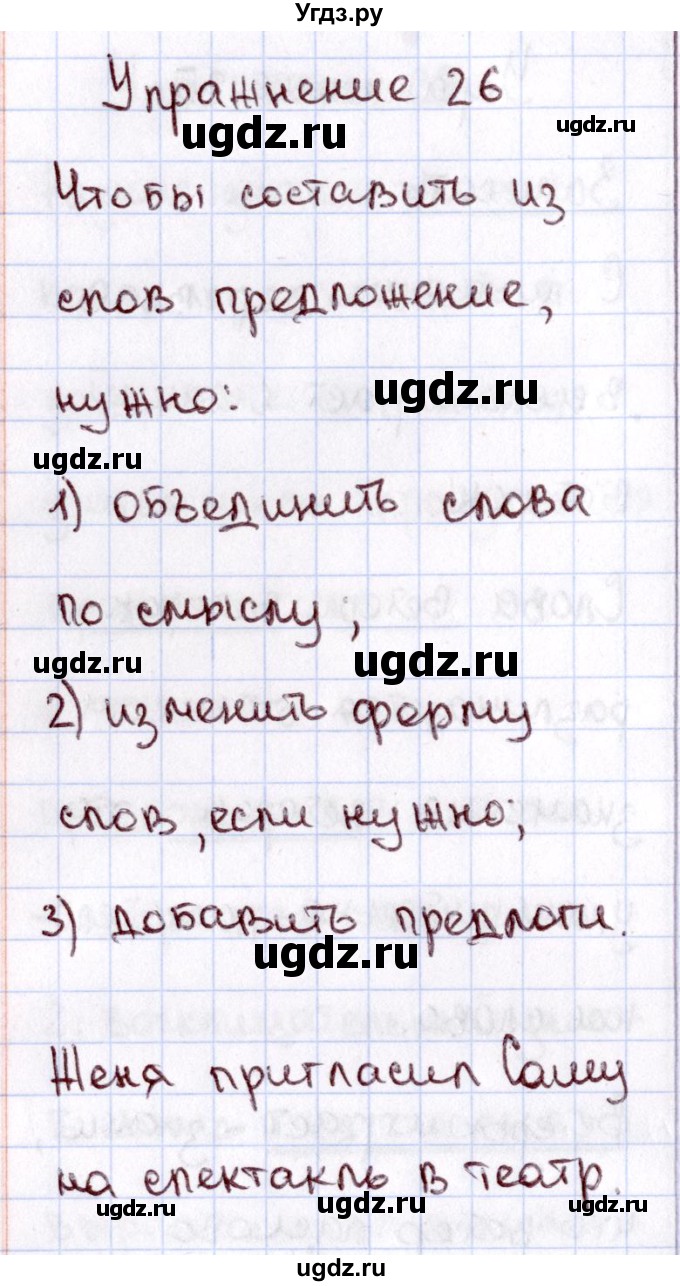 Угдз.ру
Упражнение 26
ugdz.ru
ugdz.ru
Чтобы составить из
слов предложение,
ugdz.ru
нужно:
ugdz.ru
1) объединить слова
по смыслу;
ugdz.ru
ugdz.ru
2) изменить форму
слов, если нужно;
3) добавить предлоги.
ugdz.ru
Женя пригласил Сашу
на спектакль в театр.
ugdz.ru
ugdz.ru
ugdz.ru
ugdz.ru